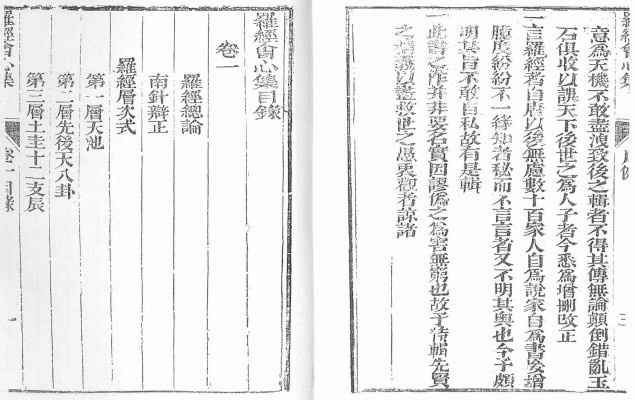 意為天機不敢盡洩致後之輯者不得其傳無論顛倒錯亂玉
石俱收以誤天下後世之為人子者今悉為增刪改正
一言羅經者自唐以後無慮數十百家人自為說家自為書妄增
臆度紛紛不一綠知者秘而不言言者又不明其奧也今予頗
明其旨不敢自私故有是輯
一此書之作并非要名實因謬偽之為害無窮也故予特輯先賢
之精義以盡救世之愚衷觀者諒諸
羅經會心集
羅經會心集目錄
卷一
羅經總論
南針辯正
羅經層次式
第一層天池
第二層先後天八卦
第三層土圭十二支辰
羅經會心集
卷一目錄
一